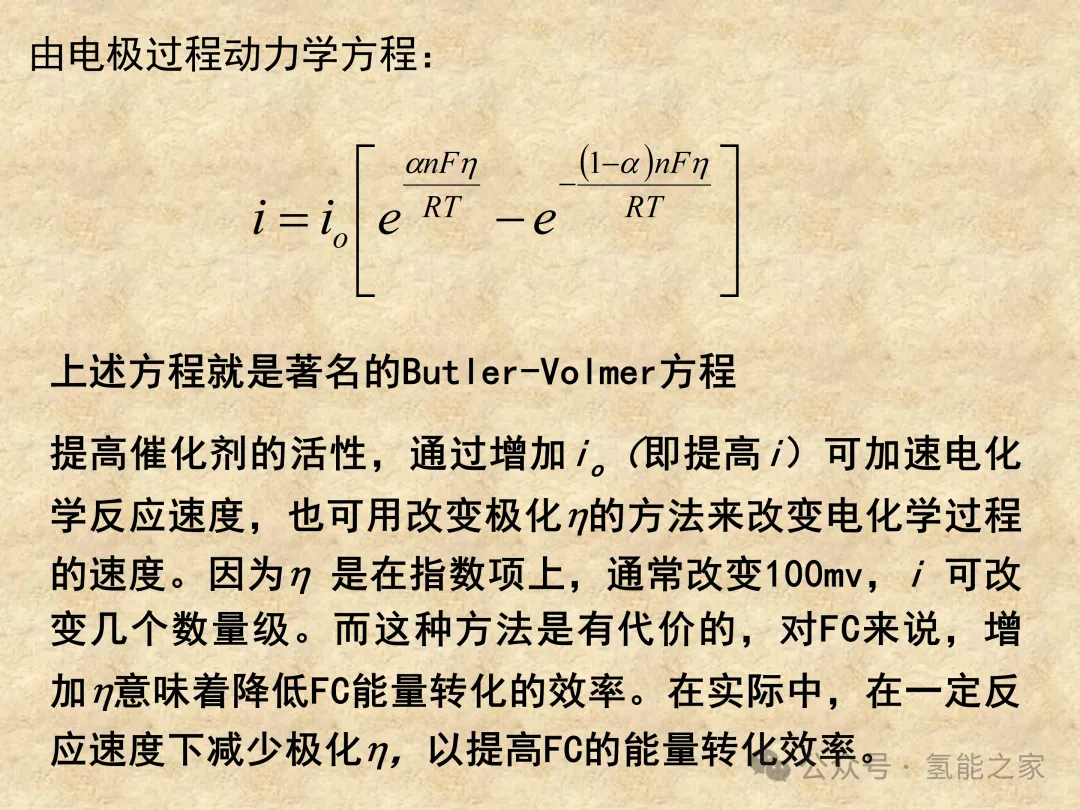 由电极过程动力学方程：
i = i_o [ e^{αnFη/RT} − e^{−(1−α)nFη/RT} ]
上述方程就是著名的Butler-Volmer方程
提高催化剂的活性，通过增加i_o（即提高i）可加速电化
学反应速度，也可用改变极化η的方法来改变电化学过程
的速度。因为η 是在指数项上，通常改变100mv，i 可改
变几个数量级。而这种方法是有代价的，对FC来说，增
加η意味着降低FC能量转化的效率。在实际中，在一定反
应速度下减少极化η，以提高FC的能量转化效率。
公众号 · 氢能之家